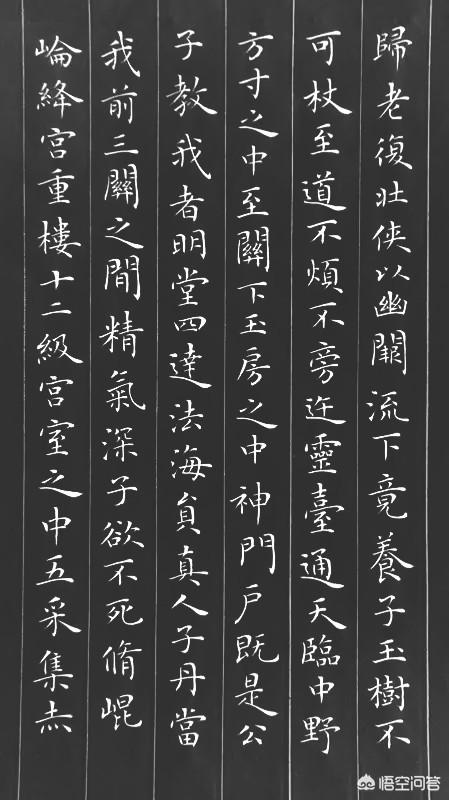 歸老復壯俠以幽闕流下竟養子玉樹不
可杖至道不煩不旁迕靈臺通天臨中野
方寸之中至關下玉房之中神門戶既是公
子教我者明堂四達法海員真人子丹當
我前三關之間精氣深子欲不死脩崐
崘絳宮重樓十二級宮室之中五采集赤
悟空问答